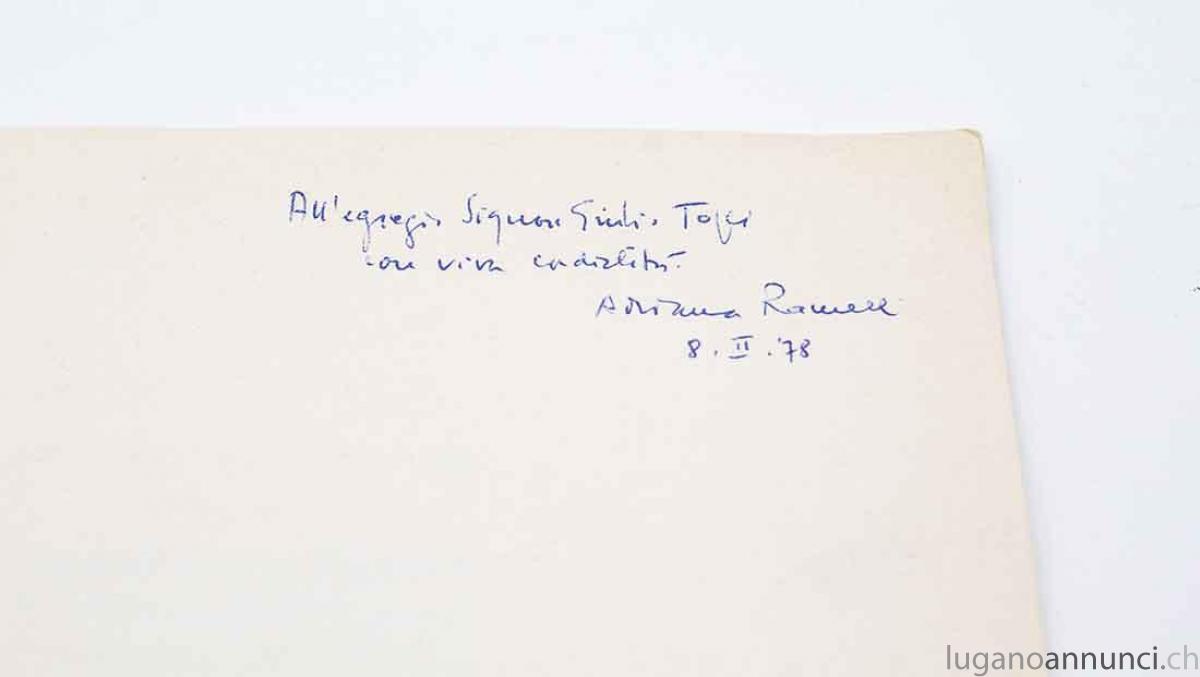 All'egregio Signor Giulio
con viva cordialità.
Adriana Ramelli
8. II. '78
luganoannunci.ch